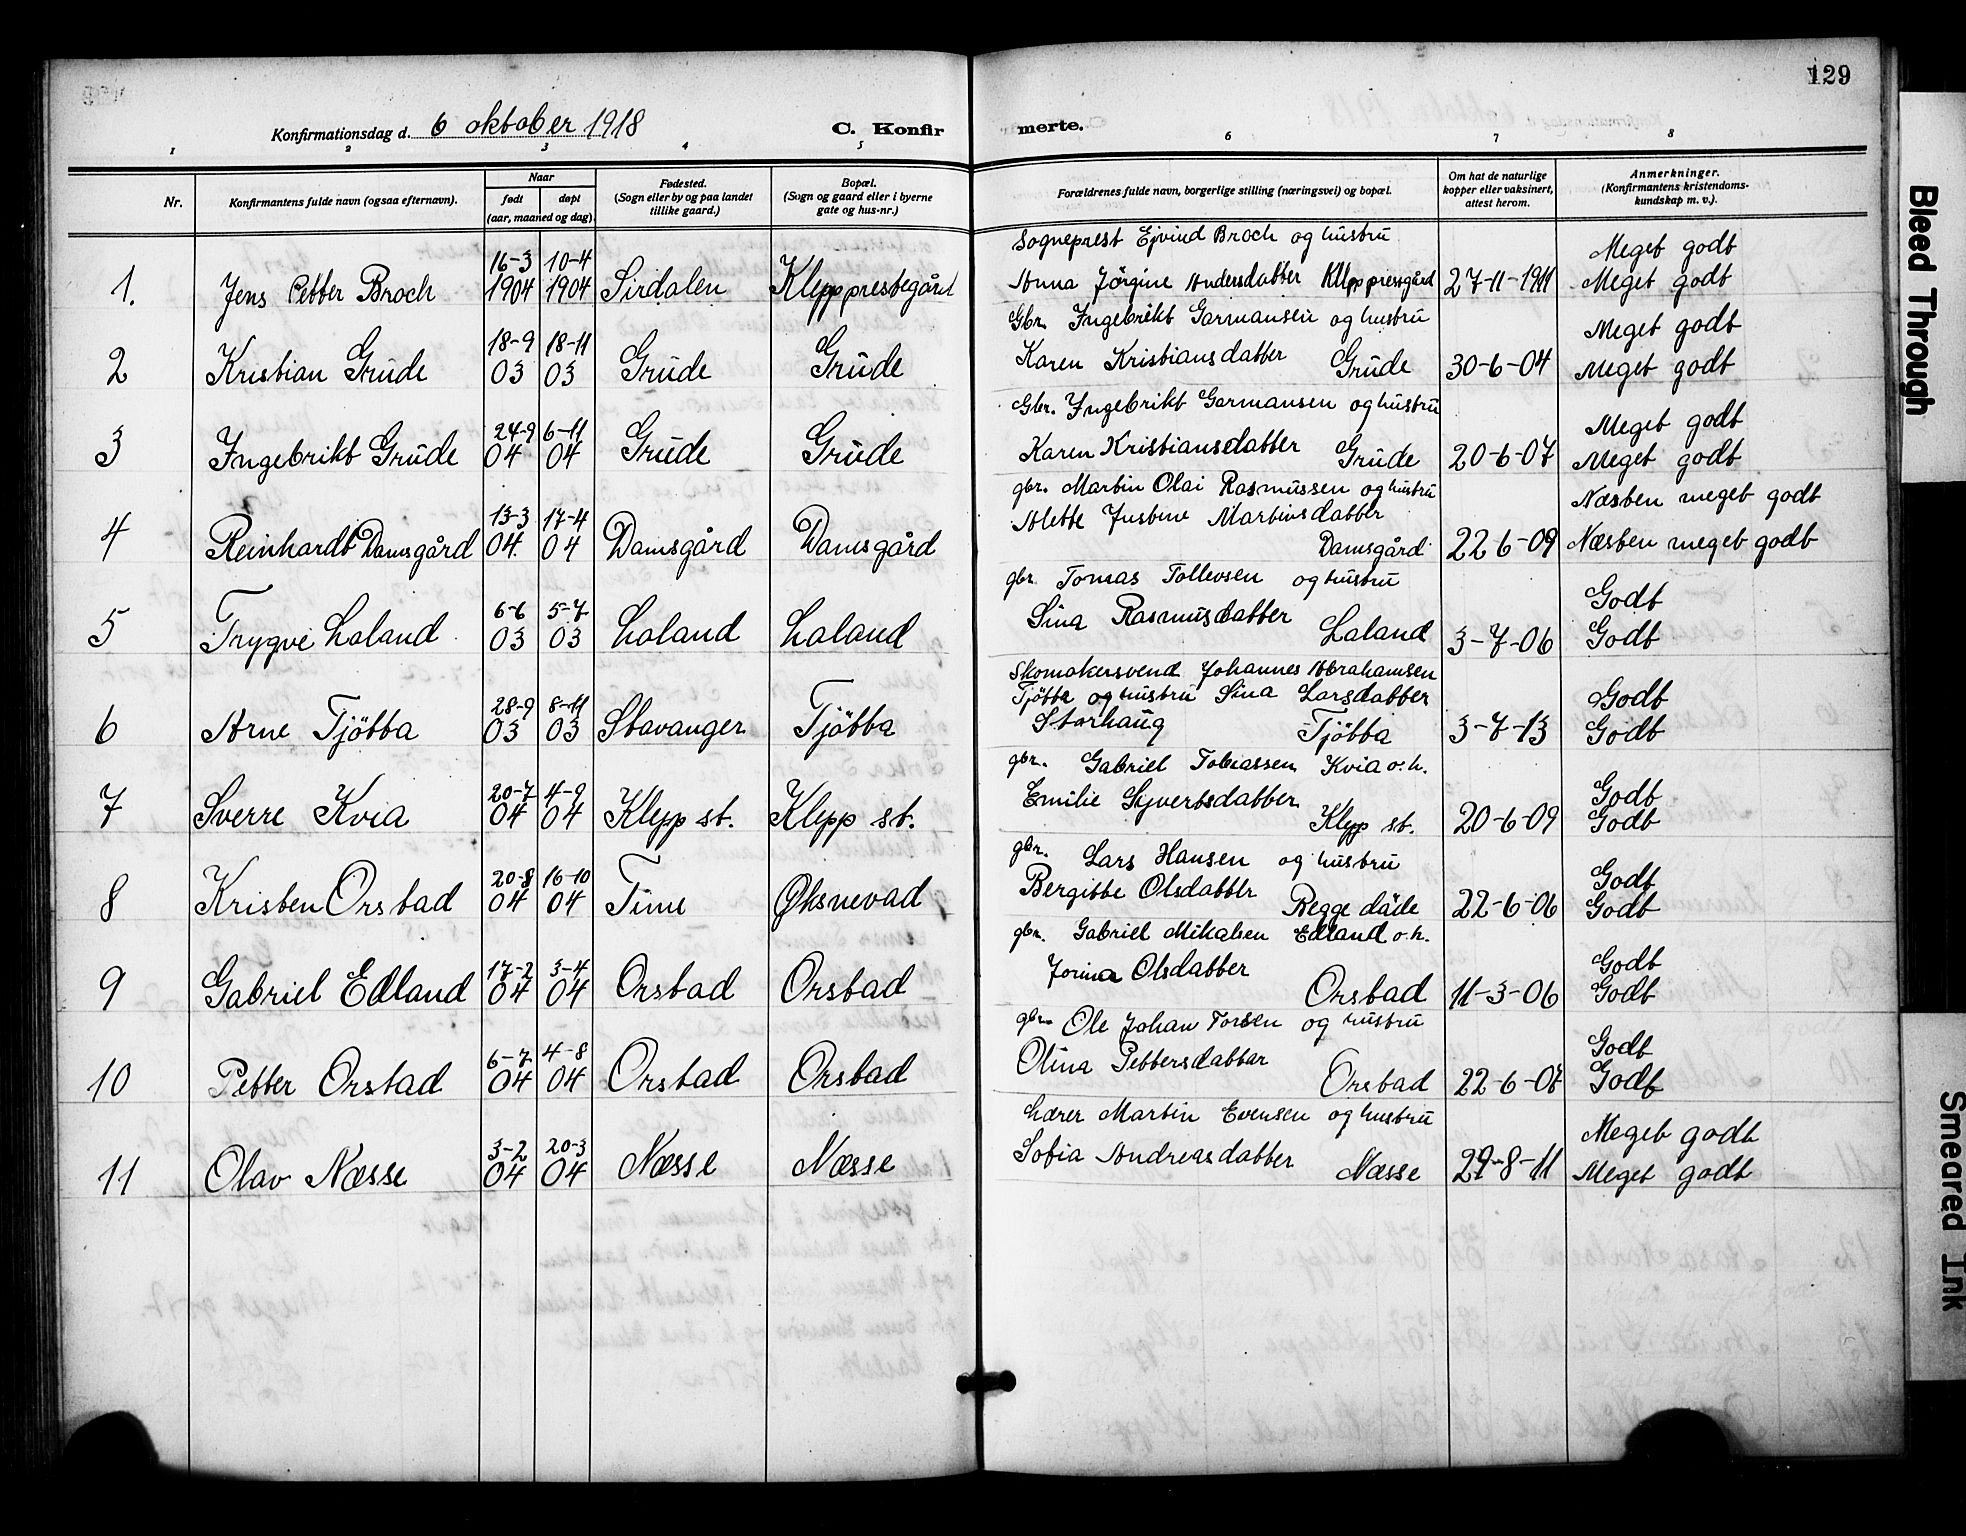 129
Konfirmationsdag d. 6 oktober 1918 C. Konfirmerte.
1 2 3 4 5 6 7 8
Nr. Konfirmantens fulde navn (ogsaa efternavn). Naar født døpt (aar, maaned og dag). Fødested. (Sogn eller by og paa landet tillike gaard.) Bopæl. (Sogn og gaard eller i byerne gate og hus-nr.) Forældrenes fulde navn, borgerlige stilling (næringsvei) og bopæl. Om hat de naturlige kopper eller vaksinert, attest herom. Anmerkninger. (Konfirmantens kristendomskundskap m. v.).
16-3 10-4 Sogneprest Ejvind Broch og hustru Meget godt
1. Jens Petter Broch 1904 1904 Sirdalen Klepp prestegård Anna Jörgine Andersdatter Klepp prestgård 27-11-1911 Meget godt
18-9 18-11 Gbr. Ingebrikt Garmansen og hustru Meget godt
2 Kristian Grude 03 03 Grude Grude Karen Kristiansdatter Grude 30-6-04 Meget godt
24-9 6-11 Gbr. Ingebrikt Garmansen og hustru Meget godt
3 Ingebrikt Grude 04 04 Grude Grude Karen Kristiansdatter Grude 20-6-07 Meget godt
13-3 17-4 gbr. Martin Olai Rasmussen og hustru Næsten meget godt
4 Reinhardt Damsgård 04 04 Damsgård Damsgård Alette Justine Martinsdatter
Damsgård 22-6-09 Næsten meget godt
6-6 5-7 gbr. Tomas Tollevsen og hustru Godt
5 Trygve Laland 03 03 Laland Laland Sina Rasmusdatter Laland 3-7-06 Godt
28-9 8-11 Skomakersvend Johannes Abrahamsen
Tjötta og hustru Sina Larsdatter Godt
6 Arne Tjötta 03 03 Stavanger Tjötta Storhaug Tjötta 3-7-13 Godt
20-7 4-9 gbr. Gabriel Tobiassen Kvia o.h. Godt
7 Sverre Kvia 04 04 Klepp st. Klepp st. Emilie Syvertsdatter Klepp st. 20-6-09 Godt
20-8 16-10 gbr. Lars Hansen og hustru Godt
8 Kristen Orstad 04 04 Time Øksnevad Bergitte Olsdatter Begge døde 22-6-06 Godt
17-2 3-4 gbr. Gabriel Mikalsen Edland o.h. Godt
9 Gabriel Edland 04 04 Orstad Orstad Jorina Olsdatter Orstad 11-3-06 Godt
6-7 4-8 gbr. Ole Johan Torsen og hustru Godt
10 Petter Orstad 04 04 Orstad Orstad Olina Pettersdatter Orstad 22-6-07 Godt
3-2 20-3 Lærer Martin Evensen og hustru Meget godt
11 Olav Næsse 04 04 Næsse Næsse Sofia Andreasdatter Næsse 29-8-11 Meget godt
Bleed Through
Smeared Ink